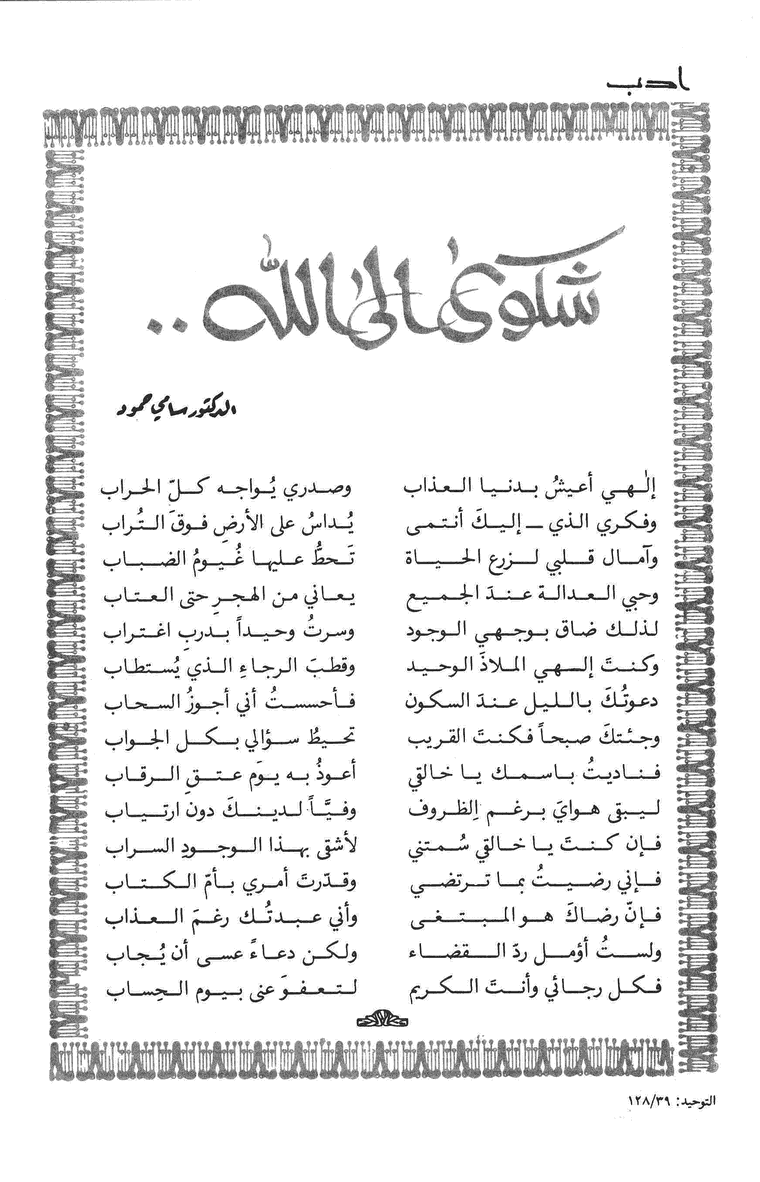 ادب
شكوى الى الله ..
الدكتور سامي حمود
إلٰهي أعيشُ بدنيا العذاب وصدري يُواجه كلّ الحراب
وفكري الذي ـ إليكَ أنتمى يُداسُ على الأرضِ فوقَ التُراب
وآمال قلبي لزرع الحياة تَحطُّ عليها غُيومُ الضباب
وحبي العدالة عندَ الجميع يعاني من الهجرِ حتى العتاب
لذلك ضاق بوجهي الوجود وسرتُ وحيداً بدربِ اغتراب
وكنتَ إلهي الملاذَ الوحيد وقطبَ الرجاءِ الذي يُستطاب
دعوتُكَ بالليل عندَ السكون فأحسستُ أني أجوزُ السحاب
وجئتكَ صبحاً فكنتَ القريب تحيطُ سؤالي بكل الجواب
فناديتُ باسمك يا خالقي أعوذُ به يوَم عتقِ الرقاب
ليبقى هوايَ برغم الظروف وفيَّاً لدينكَ دون ارتياب
فإن كنتَ يا خالقي سُمتني لأشقى بهذا الوجودِ السراب
فإني رضيتُ بما ترتضي وقدّرتَ أمري بأمّ الكتاب
فإنّ رضاكَ هو المبتغى وأني عبدتُك رغمَ العذاب
ولستُ أؤمل ردّ القضاء ولكن دعاءً عسى أن يُجاب
فكل رجائي وأنتَ الكريم لتعفوَ عنى بيوم الحِساب
التوحيد: ١٢٨/٣٩